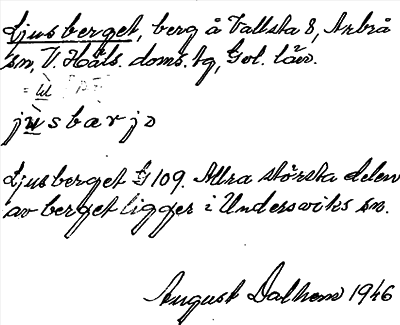 Ljusberget, berg å Vallsta 8, Arbrå
sn, V. Häls. doms. tg, Gol. län.
jusbærjɔ
Ljusberget 109. Allra största delen
av berget ligger i Undersviks sn.
August Dalhem 1946